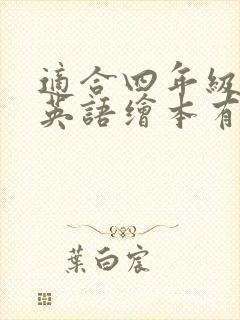 適合四年級
英語繪本有
葉白宸